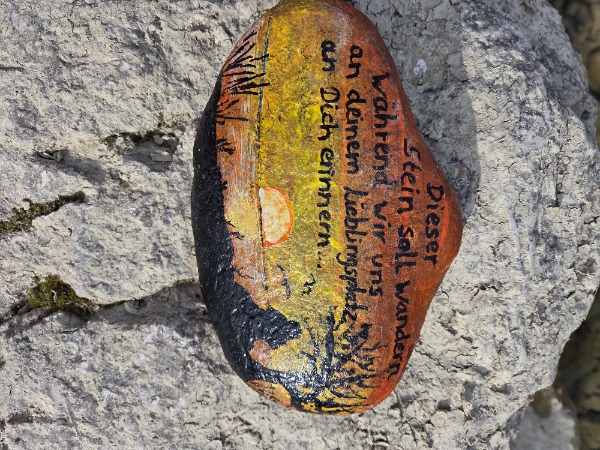 Dieser
Stein soll wandern
während wir uns
an deinem Lieblingsplatz
an Dich erinnern...